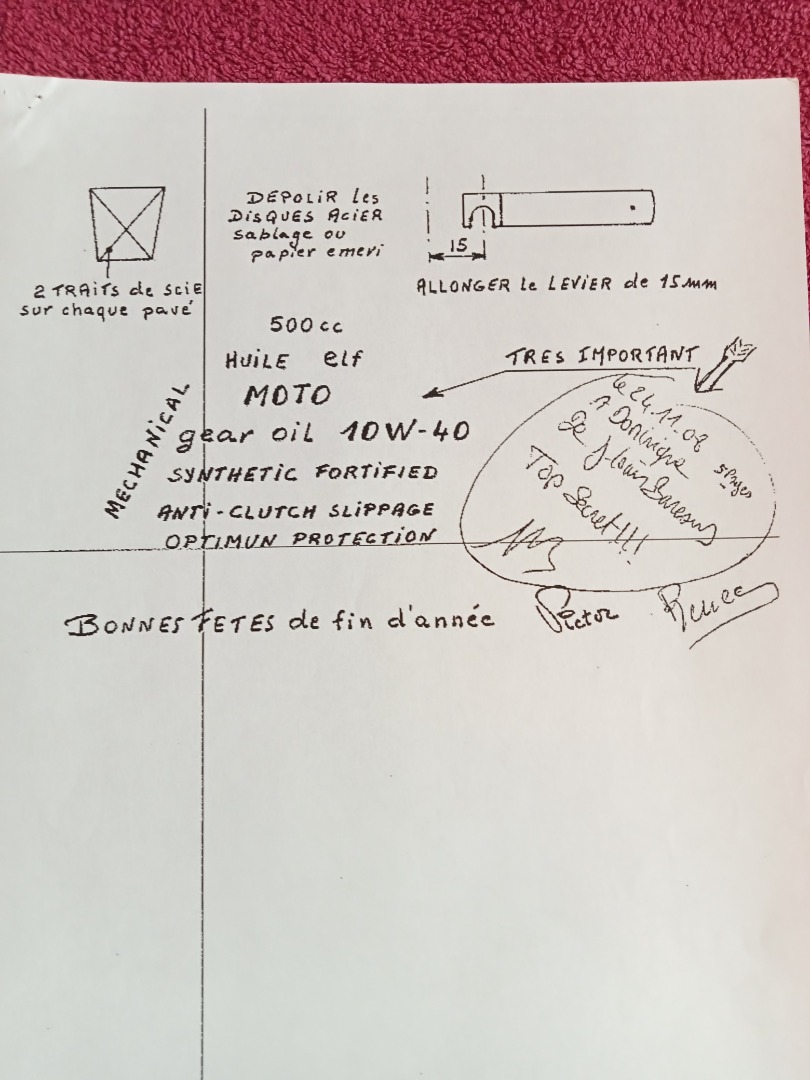 DEPOLIR les
DISQUES ACIER
sablage ou
papier emeri
15
2 TRAITS de SCIE
sur chaque pavé
ALLONGER le LEVIER de 15mm
500cc
HUILE elf
TRES IMPORTANT
MOTO
MECHANICAL
gear oil 10W-40
SYNTHETIC FORTIFIED
ANTI-CLUTCH SLIPPAGE
OPTIMUN PROTECTION
le 24.11.08
A Dominique
De J-Louis
5 Pages
Top Secret!!!
BONNES FETES de fin d'année